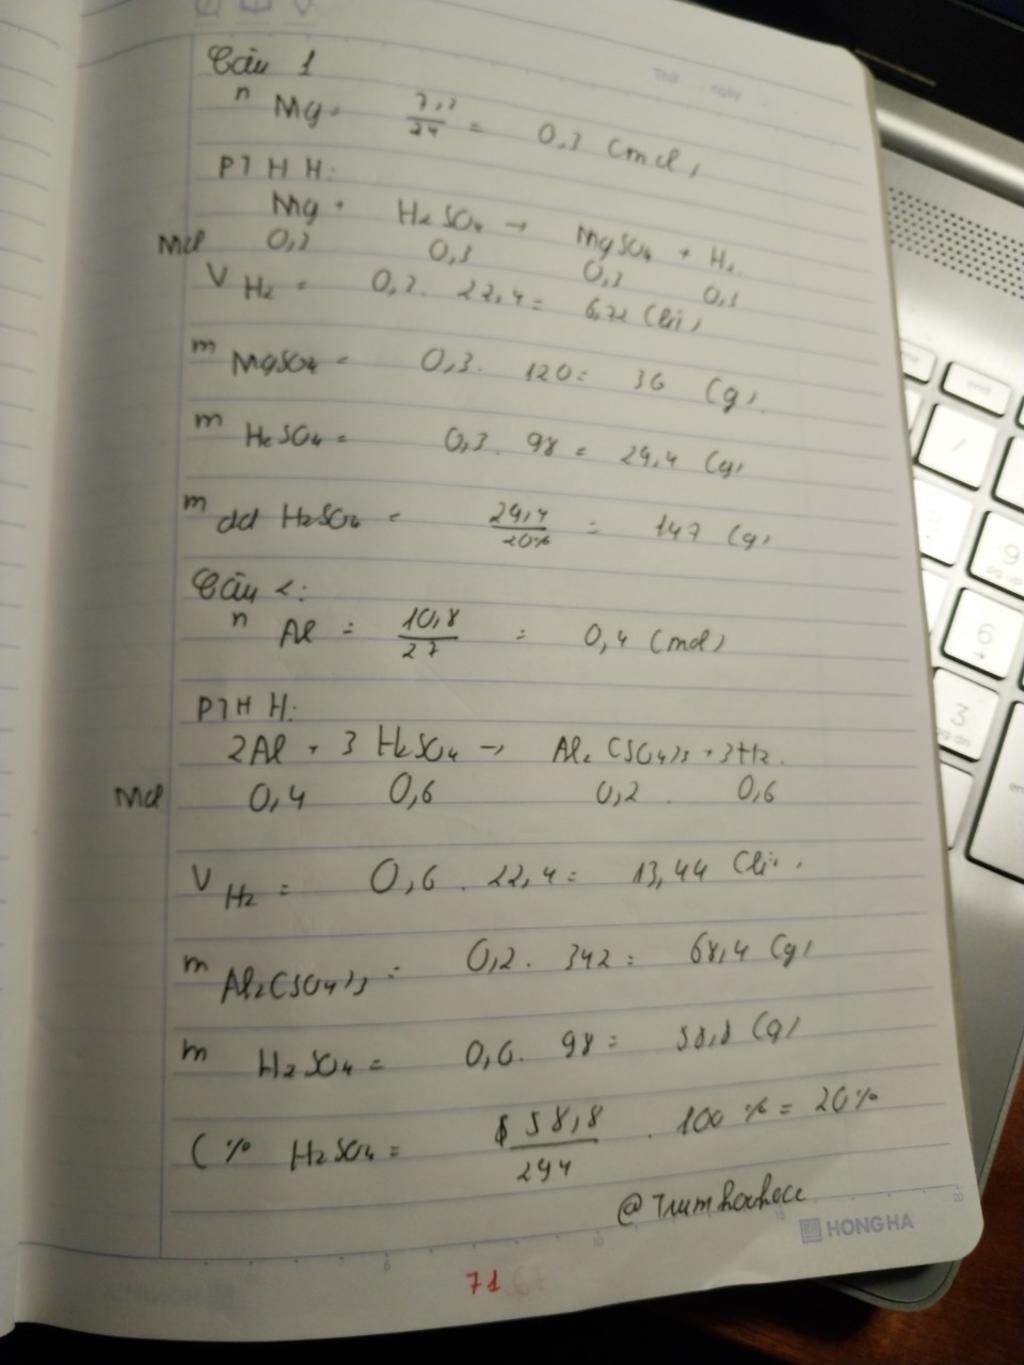 Câu 1
n Mg = 7,2/24 = 0,3 (mol)
PTHH:
Mg + H2SO4 → MgSO4 + H2.
Mol 0,3 0,3 0,3 0,3
V H2 = 0,3. 22,4 = 6,72 (lít)
m MgSO4 = 0,3. 120 = 36 (g)
m H2SO4 = 0,3. 98 = 29,4 (g)
m dd H2SO4 = 29,4/20% = 147 (g)
Câu 2:
n Al = 10,8/27 = 0,4 (mol)
PTHH:
2Al + 3H2SO4 → Al2(SO4)3 + 3H2.
Mol 0,4 0,6 0,2 0,6
V H2 = 0,6. 22,4 = 13,44 (lít)
m Al2(SO4)3 = 0,2. 342 = 68,4 (g)
m H2SO4 = 0,6. 98 = 58,8 (g)
C% H2SO4 = 58,8/294 . 100% = 20%
@Trumhoahoc
HONG HA
71